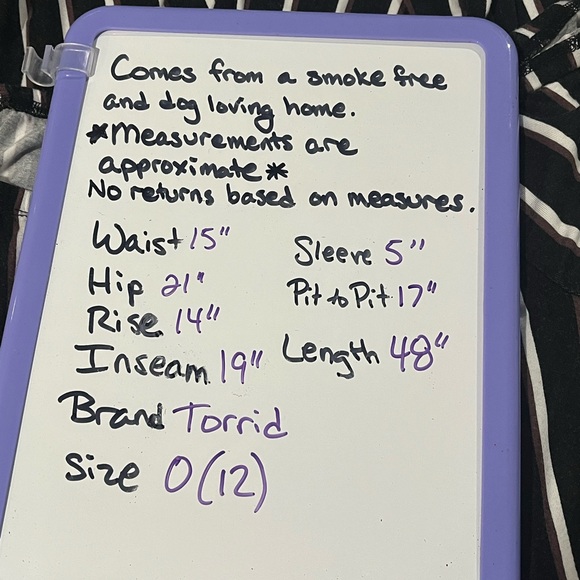 Comes from a smoke free
and dog loving home.
*Measurements are
approximate*
No returns based on measures.
Waist 15"
Hip 21"
Rise 14"
Inseam 19"
Sleeve 5"
Pit to Pit 17"
Length 48"
Brand Torrid
Size 0(12)